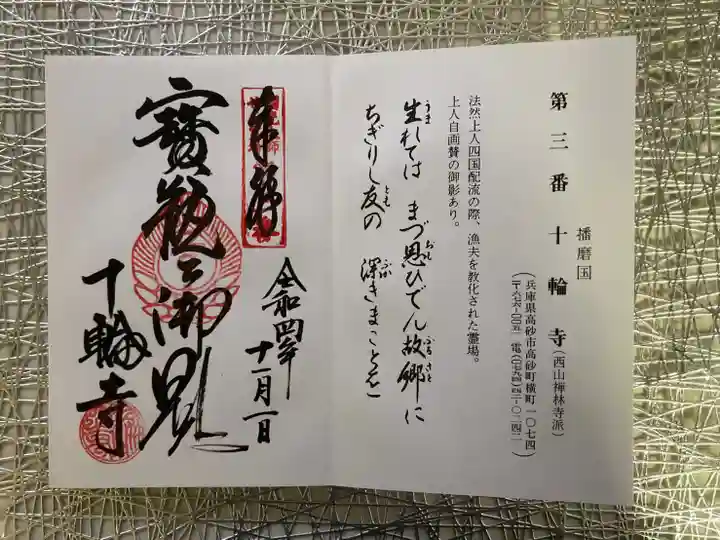 播磨国
第三番十輪寺(西山禅林寺派)
(兵庫県高砂市高砂町横町一〇七四)
法然上人四国配流の際、漁夫を教化された霊場。
上人自画賛の御影あり。
生れてはまづ思ひでん故郷に
ちぎりし友の深きまことを
奉拝
令和四年
十一月一日
寶瓶御影
十輪寺